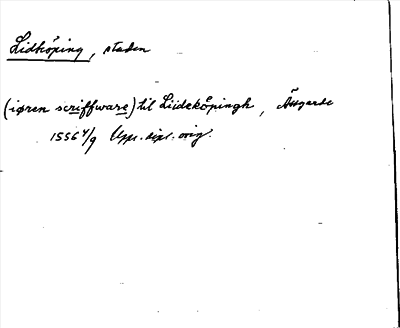 Lidköping, staden
(iøren scriffware) til Liideköpingh, Åsgarde
1556 4/9 Upps. dipl. orig.